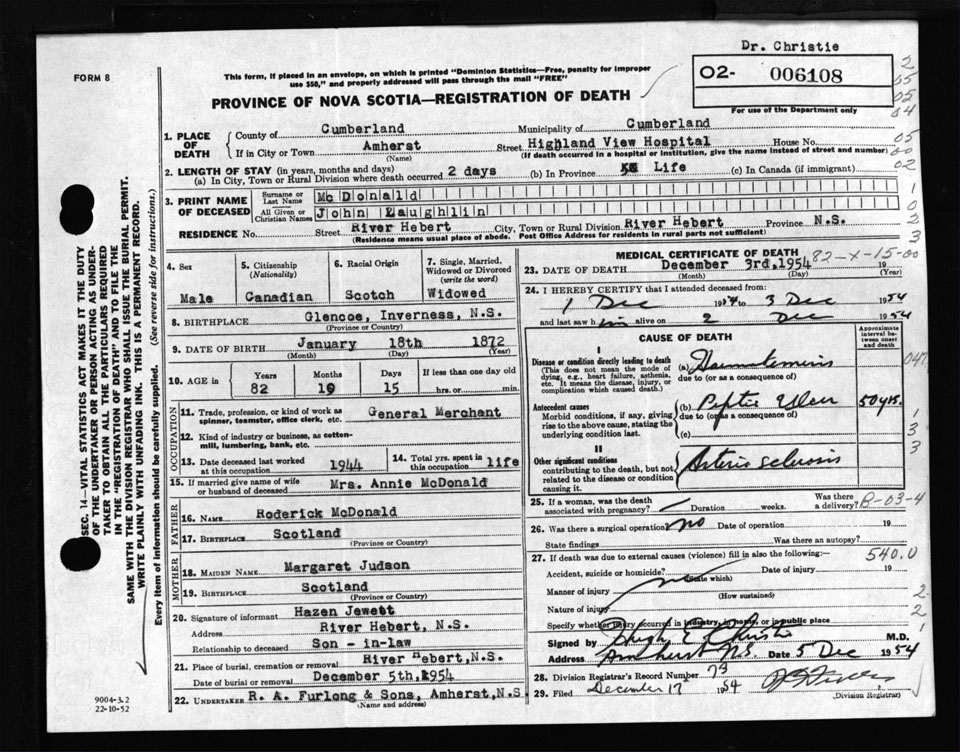 Dr. Christie
FORM 8
This form, if placed in an envelope, on which is printed "Dominion Statistics—Free, penalty for improper
use $50," and properly addressed will pass through the mail "FREE"
02- 006108
For use of the Department only
PROVINCE OF NOVA SCOTIA—REGISTRATION OF DEATH
2
05
05
04
05
00
02
1
0
2
3
SEC. 14—VITAL STATISTICS ACT MAKES IT THE DUTY
OF THE UNDERTAKER OR PERSON ACTING AS UNDER-
TAKER TO OBTAIN ALL THE PARTICULARS REQUIRED
IN THE "REGISTRATION OF DEATH" AND TO FILE THE
SAME WITH THE DIVISION REGISTRAR WHO SHALL ISSUE THE BURIAL PERMIT.
WRITE PLAINLY WITH UNFADING INK. THIS IS A PERMANENT RECORD.
Every item of information should be carefully supplied. (See reverse side for instructions.)
1. PLACE OF DEATH
County of Cumberland Municipality of Cumberland
If in City or Town Amherst Street Highland View Hospital House No.
(Name) (If death occurred in a hospital or institution, give the name instead of street and number)
2. LENGTH OF STAY (in years, months and days)
(a) In City, Town or Rural Division where death occurred 2 days (b) In Province Life (c) In Canada (if immigrant)
3. PRINT NAME OF DECEASED
Surname or Last Name McDonald
All Given or Christian Names John Laughlin
RESIDENCE No. Street River Hebert City, Town or Rural Division River Hebert Province N.S.
(Residence means usual place of abode. Post Office Address for residents in rural parts not sufficient)
4. Sex
Male
5. Citizenship
(Nationality)
Canadian
6. Racial Origin
Scotch
7. Single, Married,
Widowed or Divorced
(write the word)
Widowed
8. BIRTHPLACE Glencoe, Inverness, N.S.
(Province or Country)
9. DATE OF BIRTH January 18th 1872
(Month) (Day) (Year)
10. AGE in Years Months Days If less than one day old
82 10 15 hrs. or min.
OCCUPATION
11. Trade, profession, or kind of work as
spinner, teamster, office clerk, etc. General Merchant
12. Kind of industry or business, as cotton-
mill, lumbering, bank, etc.
13. Date deceased last worked
at this occupation 1944
14. Total yrs. spent in
this occupation life
15. If married give name of wife
or husband of deceased Mrs. Annie McDonald
FATHER
16. NAME Roderick McDonald
17. BIRTHPLACE Scotland
(Province or Country)
MOTHER
18. MAIDEN NAME Margaret Judson
19. BIRTHPLACE Scotland
(Province or Country)
20. Signature of informant Hazen Jewett
Address River Hebert, N.S.
Relationship to deceased Son - in-law
21. Place of burial, cremation or removal River Hebert,N.S.
Date of burial or removal December 5th, 1954
22. UNDERTAKER R. A. Furlong & Sons, Amherst,N.S.
(Name and address)
9004-3.2
22-10-52
MEDICAL CERTIFICATE OF DEATH
82-X-15-00
23. DATE OF DEATH December 3rd, 1954 19
(Month) (Day) (Year)
24. I HEREBY CERTIFY that I attended deceased from:
1 Dec 1954 to 3 Dec 1954
and last saw him alive on 2 Dec 1954
CAUSE OF DEATH
Approximate
interval be-
tween onset
and death
I
Disease or condition directly leading to death
(This does not mean the mode of
dying, e.g., heart failure, asthenia,
etc. It means the disease, injury, or
complication which caused death.)
(a) Haematemesis
due to (or as a consequence of)
Antecedent causes
Morbid conditions, if any, giving
rise to the above cause, stating the
underlying condition last.
(b) Peptic Ulcer 50 yrs.
due to (or as a consequence of)
(c)
II
Other significant conditions
contributing to the death, but not
related to the disease or condition
causing it.
Arterio sclerosis
047
1
3
3
25. If a woman, was the death
associated with pregnancy? Duration weeks. Was there
a delivery?
B-03-4
26. Was there a surgical operation? no Date of operation 19
State findings Was there an autopsy?
27. If death was due to external causes (violence) fill in also the following:—
540.0
Accident, suicide or homicide? no Date of injury 19
(State which)
Manner of injury
(How sustained)
Nature of injury
Specify whether injury occurred in industry, in home, or in public place
2
2
1
Signed by Hugh E Christie M.D.
Address Amherst N.S. Date 5 Dec 1954
28. Division Registrar's Record Number 73
29. Filed December 17 1954
(Division Registrar)